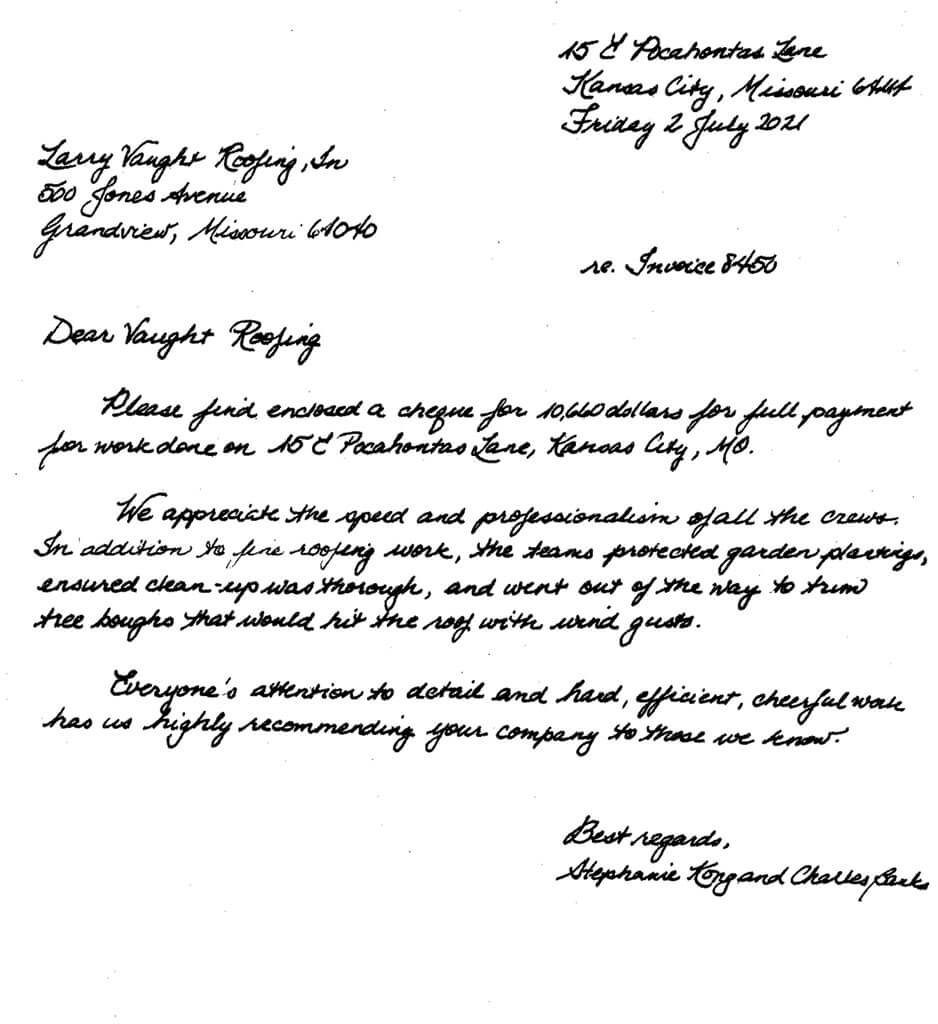 15 E Pocahontas Lane
Kansas City, Missouri
Friday 2 July 2021
Larry Vaught Roofing, In
500 Jones Avenue
Grandview, Missouri 64040
re. Invoice 8450
Dear Vaught Roofing
Please find enclosed a cheque for 10,660 dollars for full payment
for work done on 15 E Pocahontas Lane, Kansas City, MO.
We appreciate the speed and professionalism of all the crews.
In addition to fine roofing work, the teams protected garden plantings,
ensured clean-up was thorough, and went out of the way to trim
tree boughs that would hit the roof with wind gusts.
Everyone's attention to detail and hard, efficient, cheerful work
has us highly recommending your company to those we know.
Best regards,
Stephanie Kong and Charles